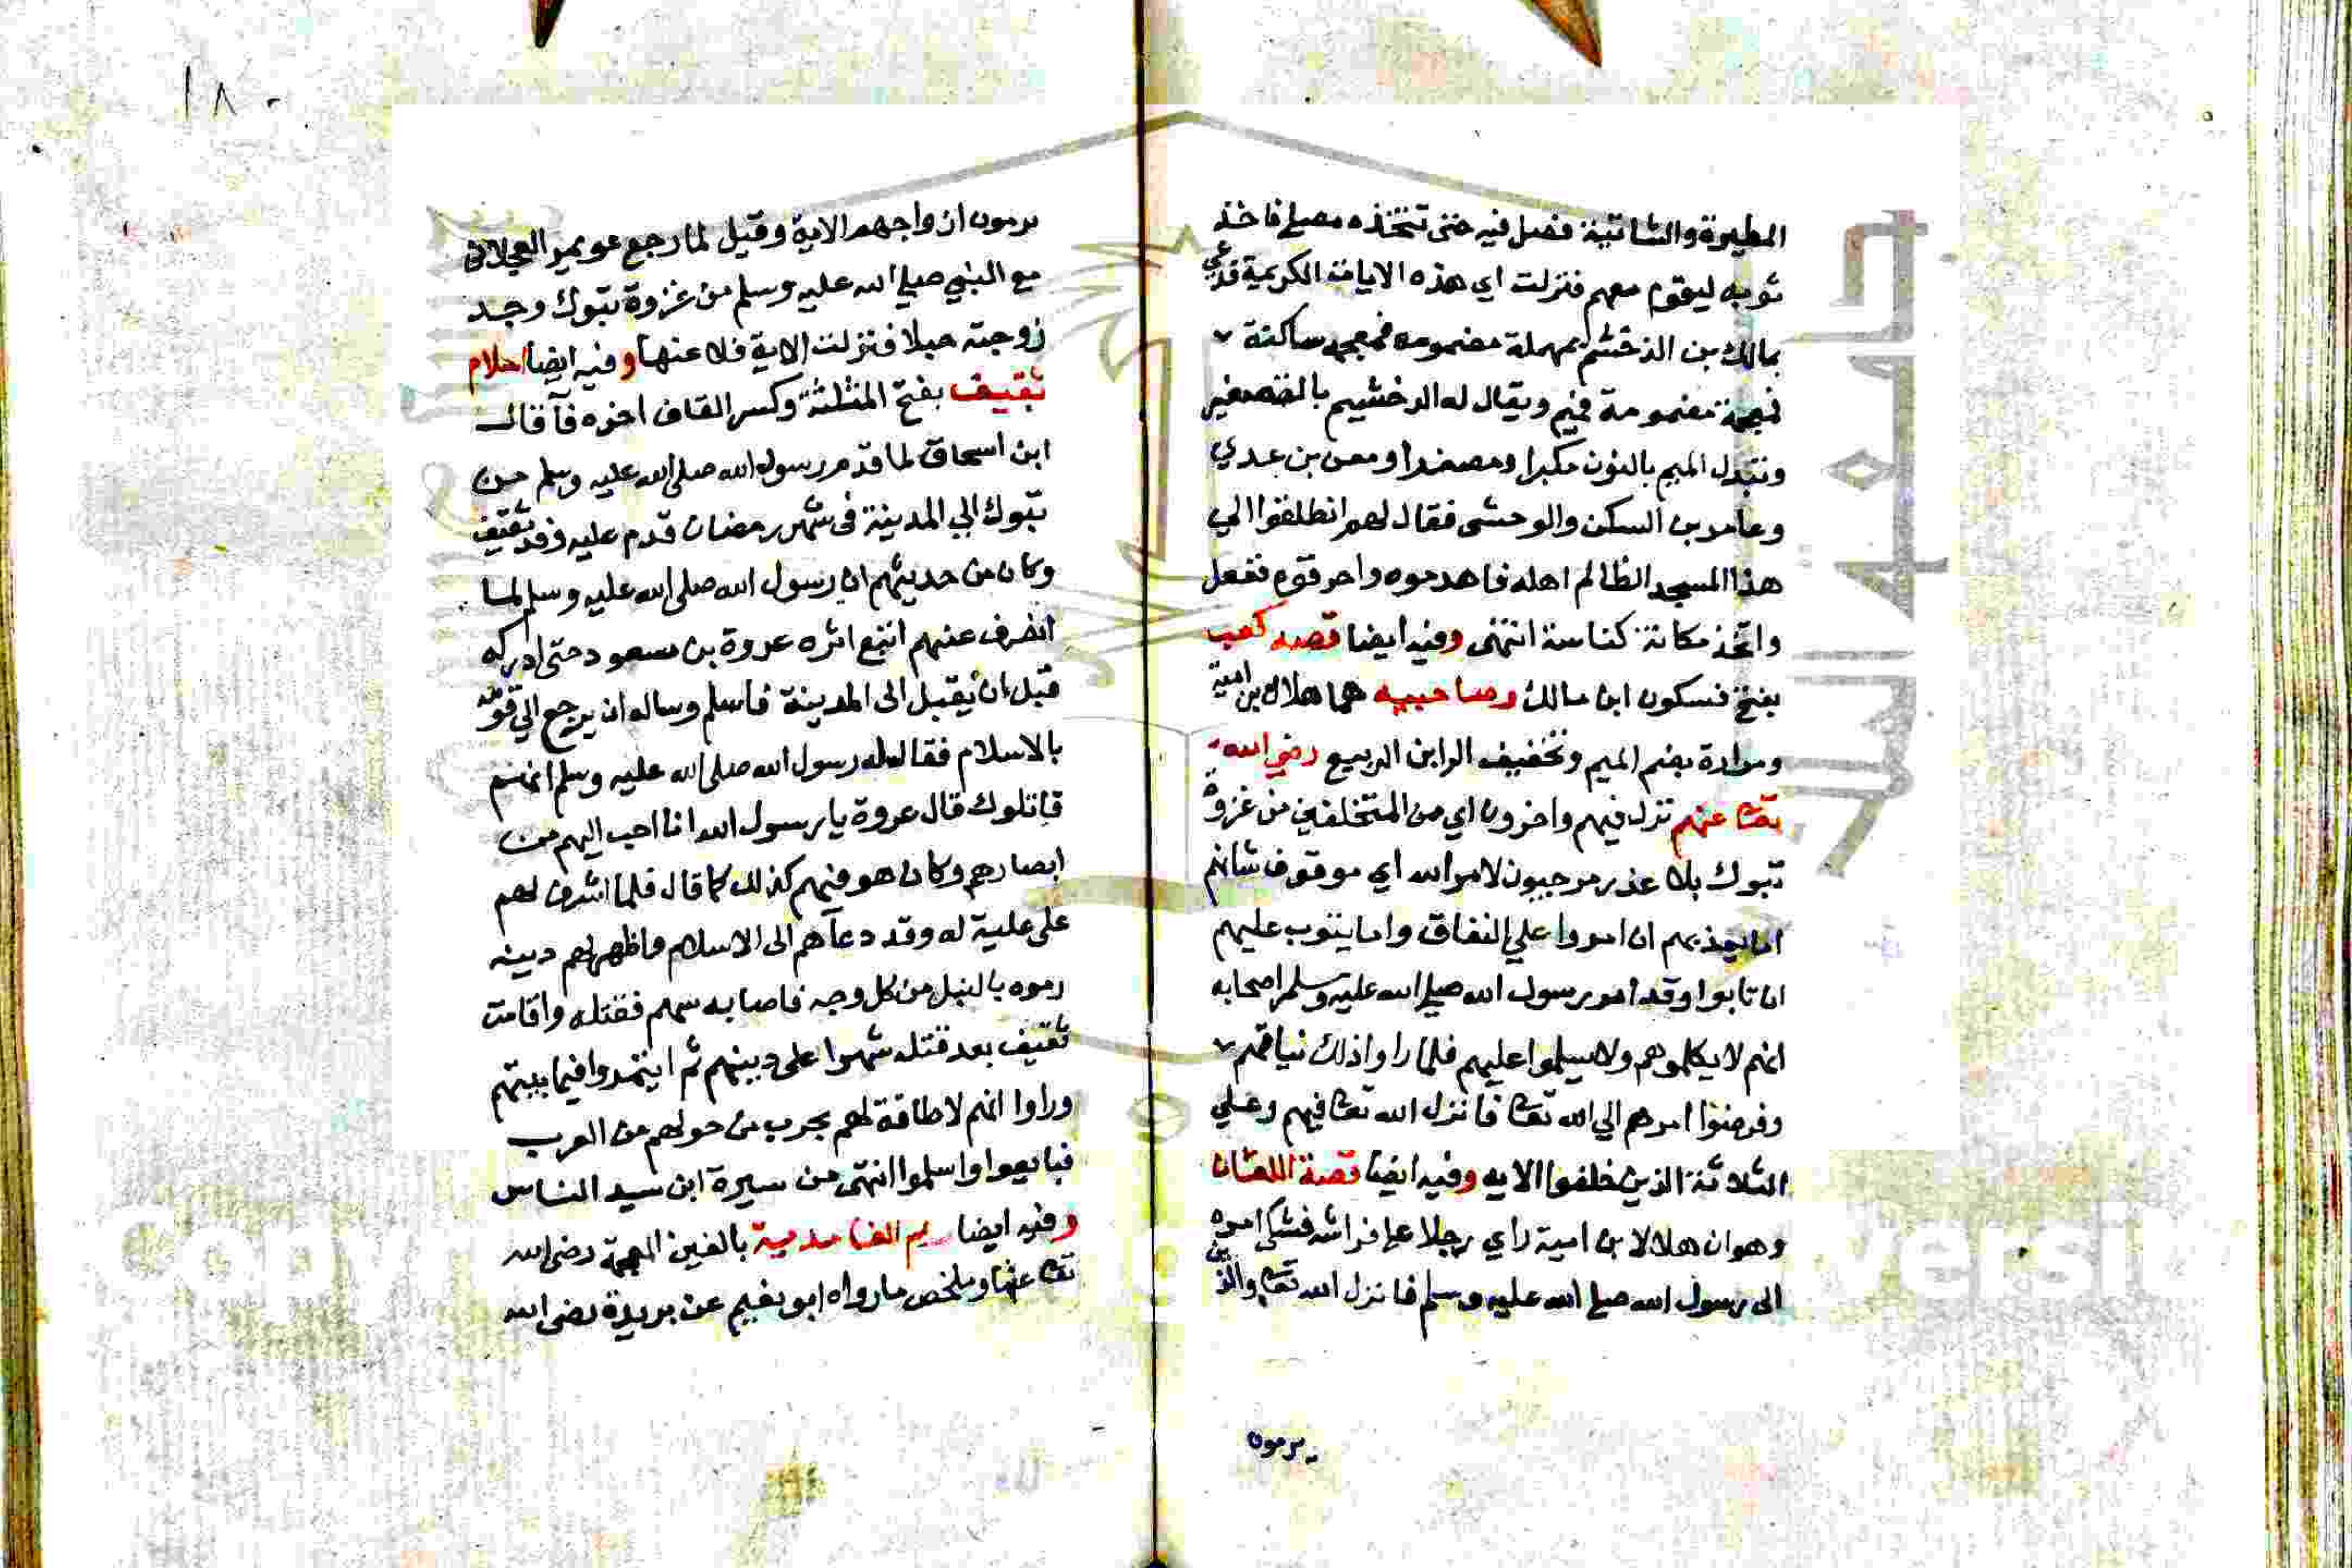 المطيرة والشاتية فصل فيه حتى تتخذه مصلى فاخذ
ثوبه ليقوم معهم فنزلت اي هذه الايات الكريمة فدعي
بمالك بن الدخشم بمهملة مضمومة فمعجمه ساكنة
فمعجمة مضمومة فميم ويقال له الدخشيم بالتصغير
وتبدل الميم بالنون مكبرا ومصغرا ومعن بن عدي
وعامر بن السكن والوحشى فقال لهم انطلقوا الي
هذا المسجد الظالم اهله فاهدموه واحرقوه ففعل
واتخذ مكانه كناسة انتهى وفيه ايضا قصه كعب
بفتح فسكون ابن مالك وصاحبيه هما هلال بن امية
ومرارة بضم الميم وتخفيف الرابن الربيع رضي الله
تعا عنهم نزل فيهم واخرون اي من المتخلفين من غزوة
تبوك بلا عذر مرجون لامر الله اي موقوف شانهم
اما يعذبهم ان اصروا علي النفاق واما يتوب عليهم
ان تابوا وقد امر رسول الله صلي الله عليه وسلم اصحابه
انهم لا يكلموهم ولا يسلموا عليهم فلما راوا ذلك
وفوضوا امرهم الي الله تعا فانزل الله تعا فيهم وعلي
الثلاثة الذين خلفوا الايه وفيه ايضا قصة اللعان
وهو ان هلالا بن امية راي رجلا علي فراشه فشكى امره
الى رسول الله صلي الله عليه وسلم فانزل الله تعا والذين
يرمون
١٨٠
يرمون ازواجهم الاية وقيل لما رجع عويمر العجلاني
مع النبي صلي الله عليه وسلم من غزوة تبوك وجد
زوجته حبلا فنزلت الاية فلاعنها وفيه ايضا اسلام
ثقيف بفتح المثلثة وكسر القاف اخره فآ قال
ابن اسحاق لما قدم رسول الله صلى الله عليه وسلم من
تبوك الي المدينة فى شهر رمضان قدم عليه وفد ثقيف
وكان من حديثهم ان رسول الله صلى الله عليه وسلم لما
انصرف عنهم اتبع اثره عروة بن مسعود حتى ادركه
قبل ان يقبل الى المدينة فاسلم وساله ان يرجع الي قومه
بالاسلام فقال له رسول الله صلى الله عليه وسلم انهم
قاتلوك قال عروة يا رسول الله انا احب اليهم من
ابصارهم وكان هو فيهم كذلك كما قال فلما اشرف لهم
على علية له وقد دعاهم الى الاسلام واظهر لهم دينه
رموه بالنبل من كل وجه فاصابه سهم فقتله واقامت
ثقيف بعد قتله شهرا على دينهم ثم ايتمروا فيما بينهم
وراوا انهم لا طاقة لهم بحرب من حولهم من العرب
فبايعوا واسلموا انتهى من سيرة ابن سيد الناس
وفيه ايضا رجم الغامدية بالغين المعجمة رضى الله
تعا عنها وملخص ما رواه ابو نعيم عن بريدة رضى الله